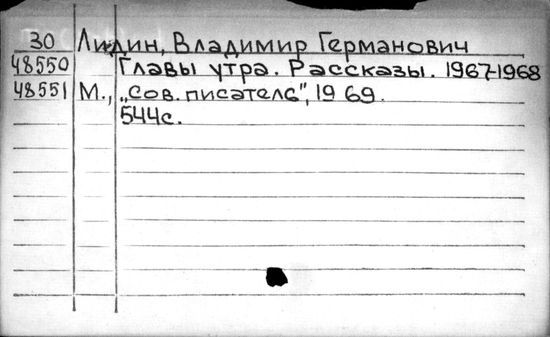 30 Лидин, Владимир Германович
48550 Главы утра. Рассказы. 1967-1968
48551 М., „Сов. писатель", 1969.
544с.